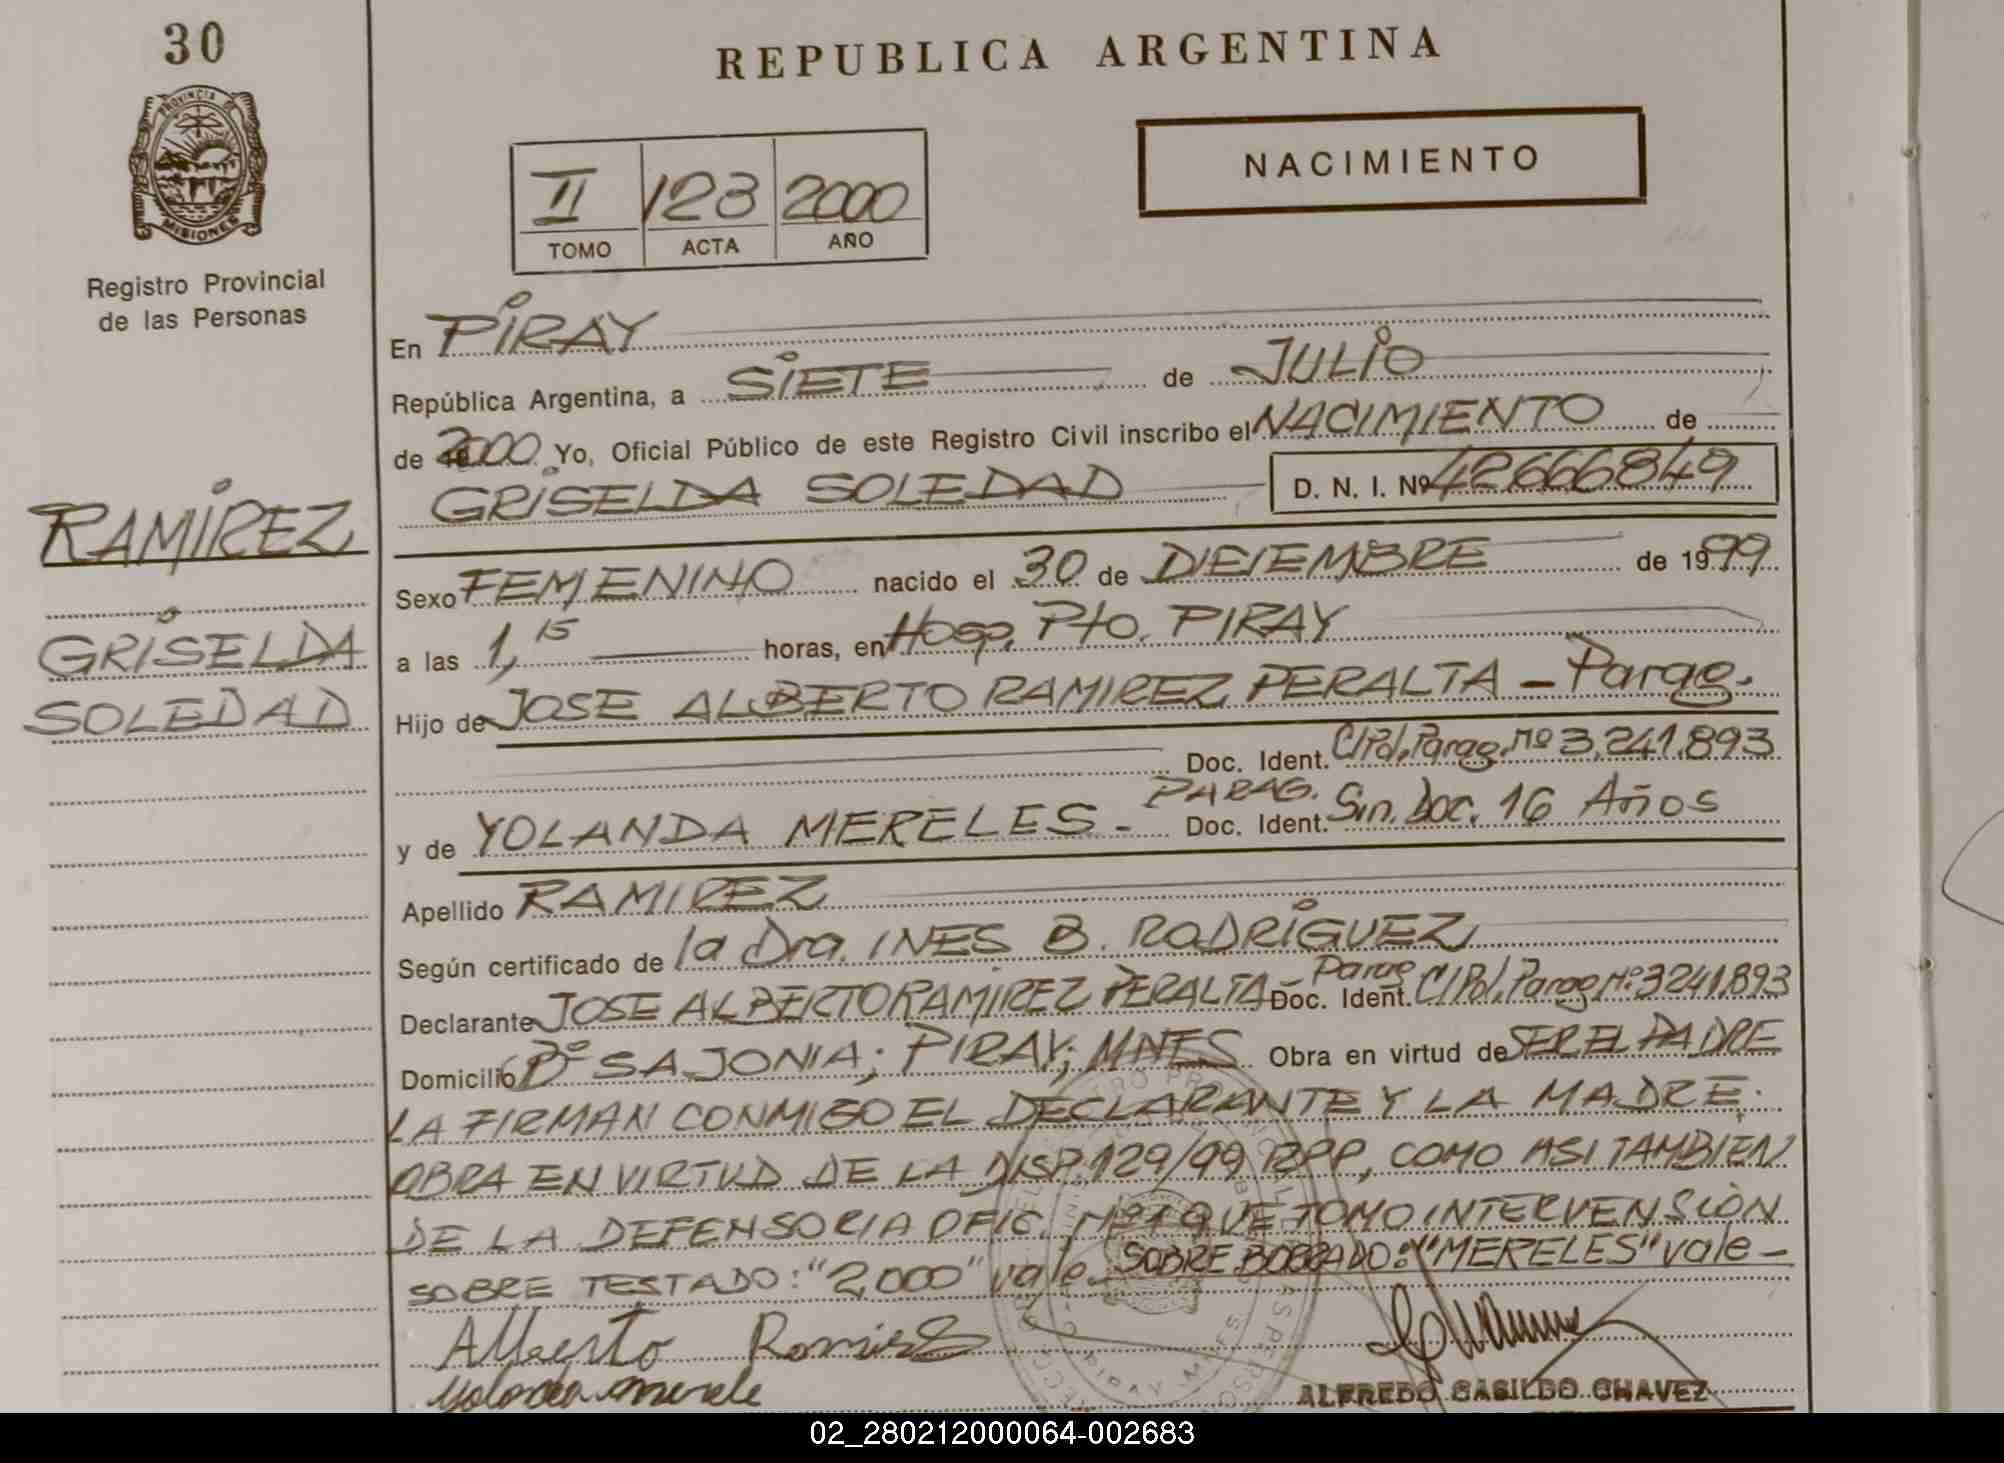 30
REPUBLICA ARGENTINA
PROVINCIA DE
MISIONES
NACIMIENTO
II 123 2000
TOMO ACTA AÑO
Registro Provincial
de las Personas
En PIRAY
República Argentina, a SIETE de JULIO
de 2000 Yo, Oficial Público de este Registro Civil inscribo el NACIMIENTO de
GRISELDA SOLEDAD D. N. I. Nº 42666849
RAMIREZ
GRISELDA
SOLEDAD
Sexo FEMENINO nacido el 30 de DICIEMBRE de 1999
a las 1,15 horas, en Hosp. Pto. PIRAY
Hijo de JOSE ALBERTO RAMIREZ PERALTA - Parag.
Doc. Ident. C/Pol. Parag. Nº 3.241.893
y de YOLANDA MERELES - PARAG. Doc. Ident. Sin. Doc. 16 Años
Apellido RAMIREZ
Según certificado de la Dra. INES B. RODRIGUEZ
Declarante JOSE ALBERTO RAMIREZ PERALTA - Parag Doc. Ident. C/Pol. Parag Nº 3241.893
Domicilio Bº SAJONIA; PIRAY; MNES Obra en virtud de SER EL PADRE
LA FIRMAN CONMIGO EL DECLARANTE Y LA MADRE.
OBRA EN VIRTUD DE LA DISP. 129/99 RPP, COMO ASI TAMBIEN
DE LA DEFENSORIA OFIC. Nº 1 QUE TOMO INTERVENSIÓN
SOBRE TESTADO: "2,000" vale. SOBRE BORRADO: "MERELES" vale -
Alberto Ramirez
Yolanda merele
ALFREDO CASILDO CHAVEZ
02_280212000064-002683